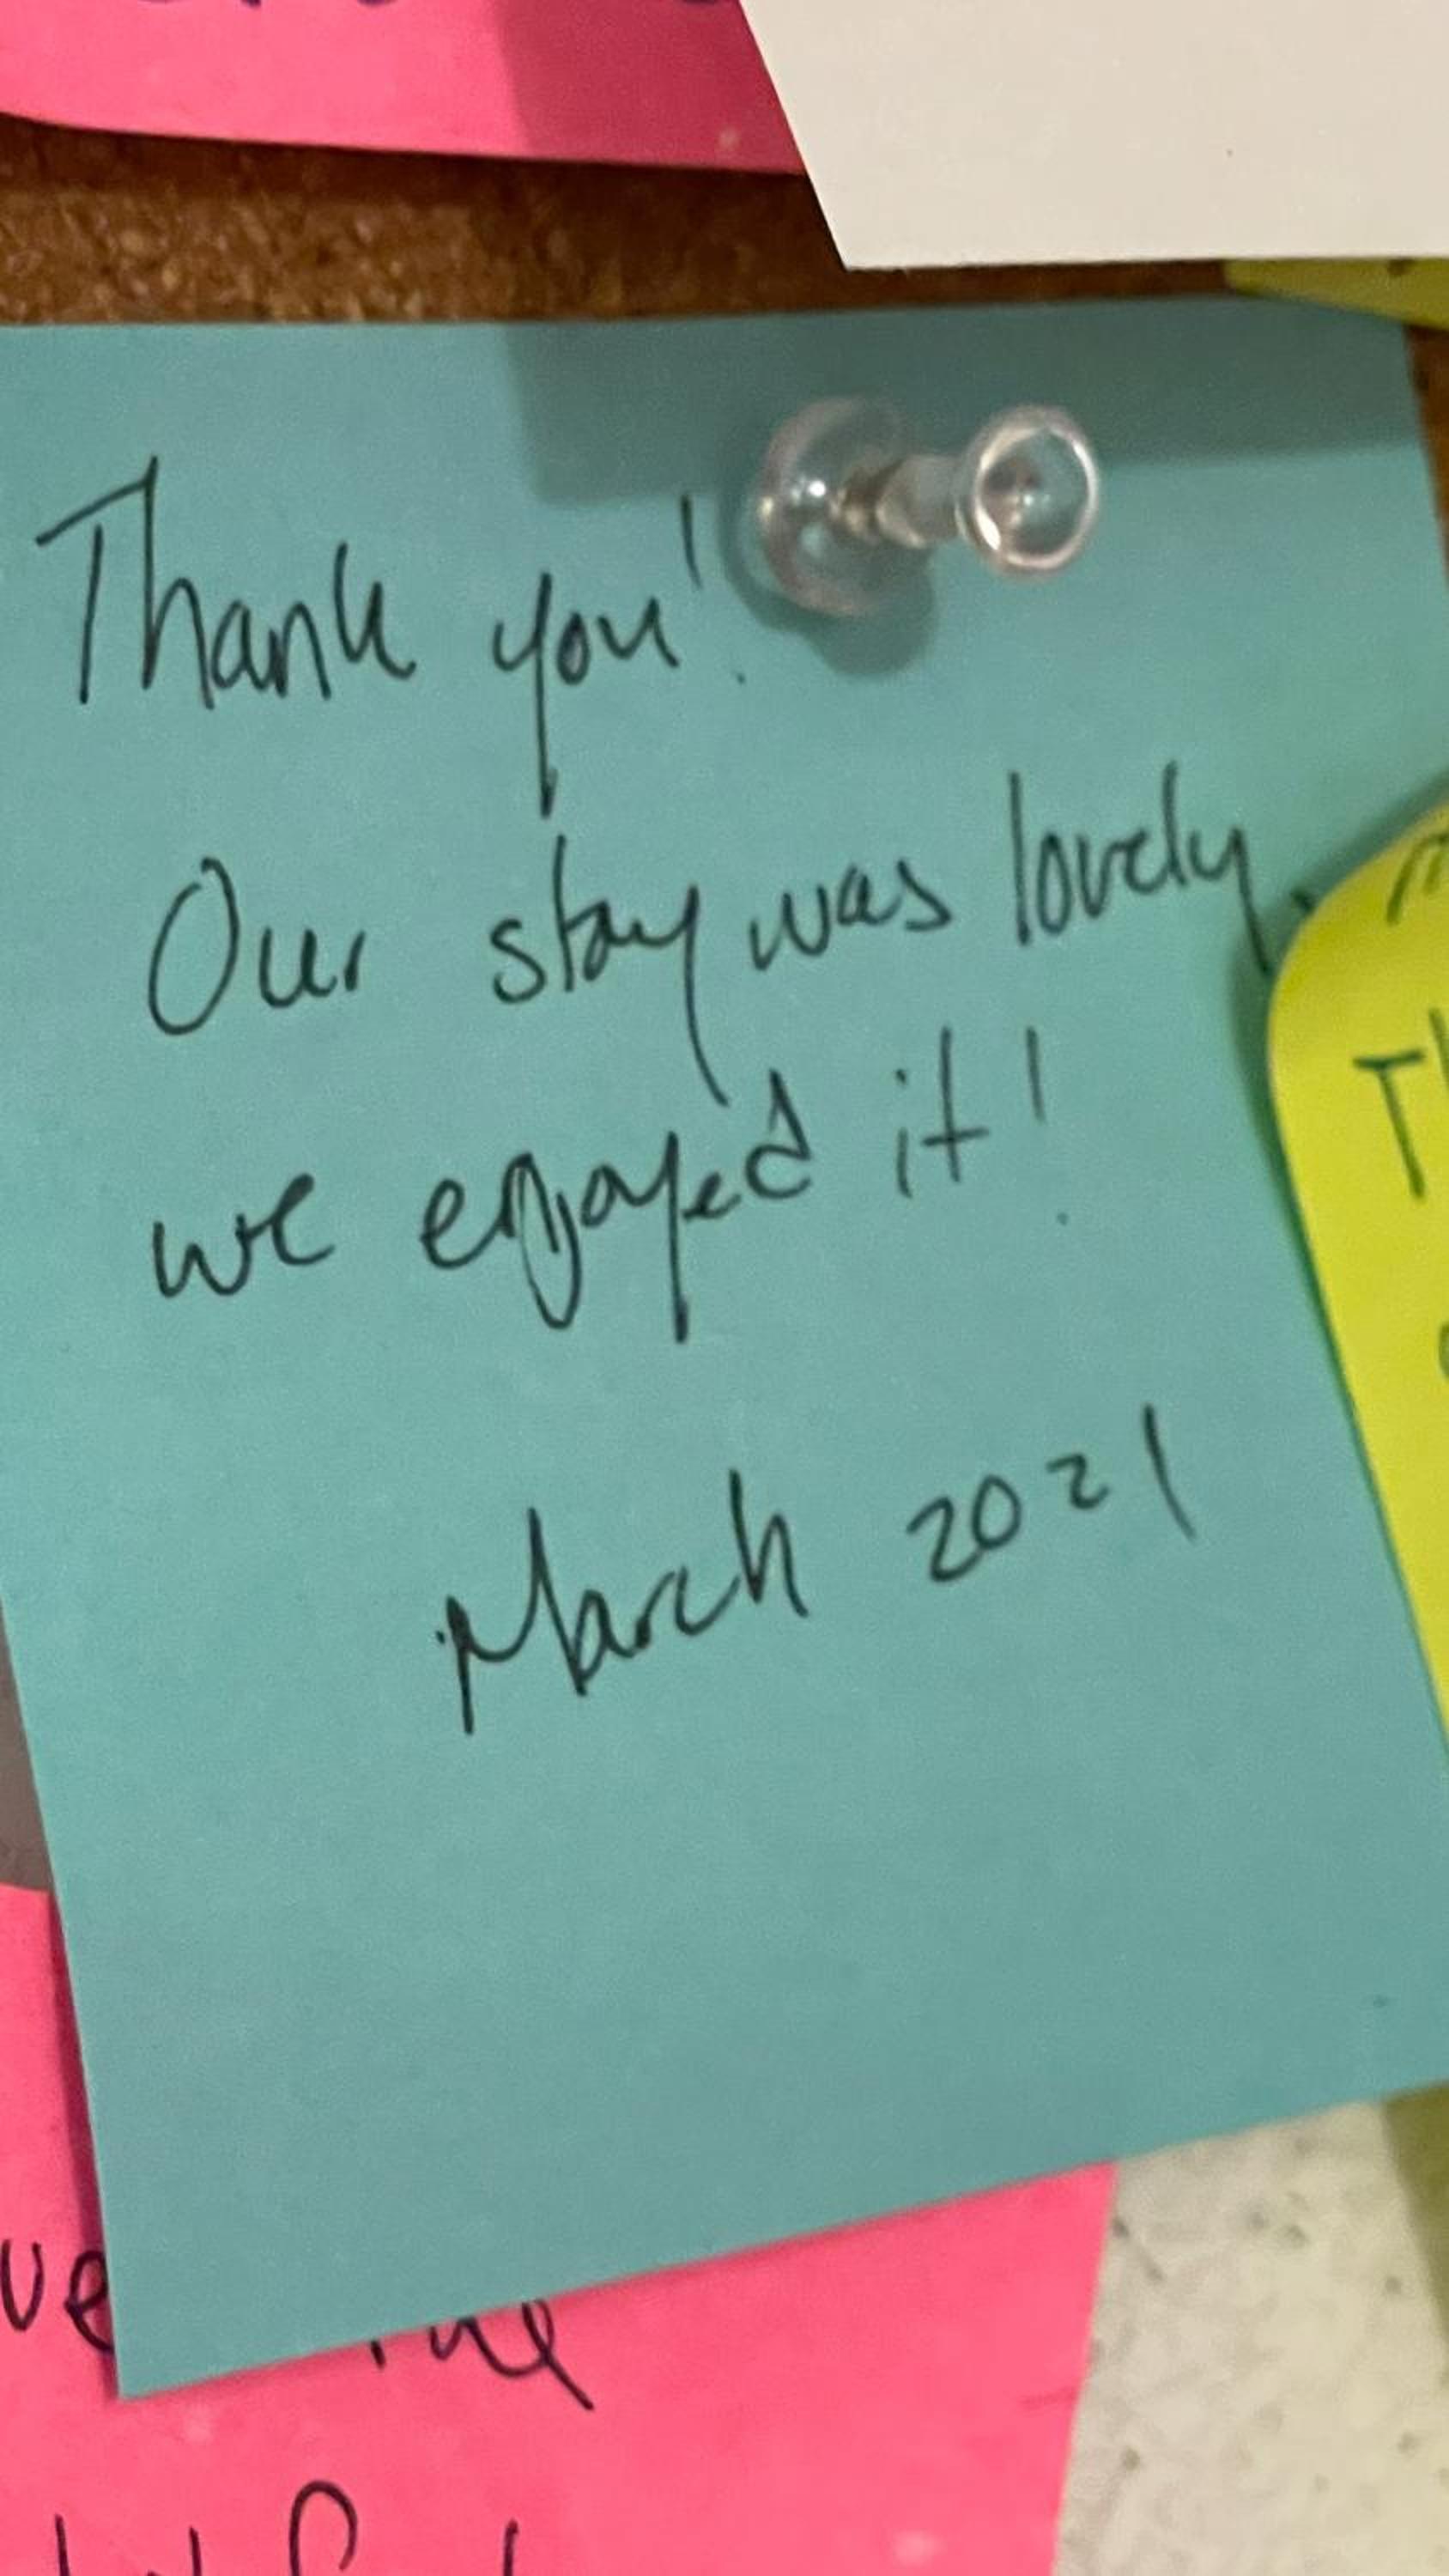 Thank you!
Our stay was lovely,
we enjoyed it!
March 2021